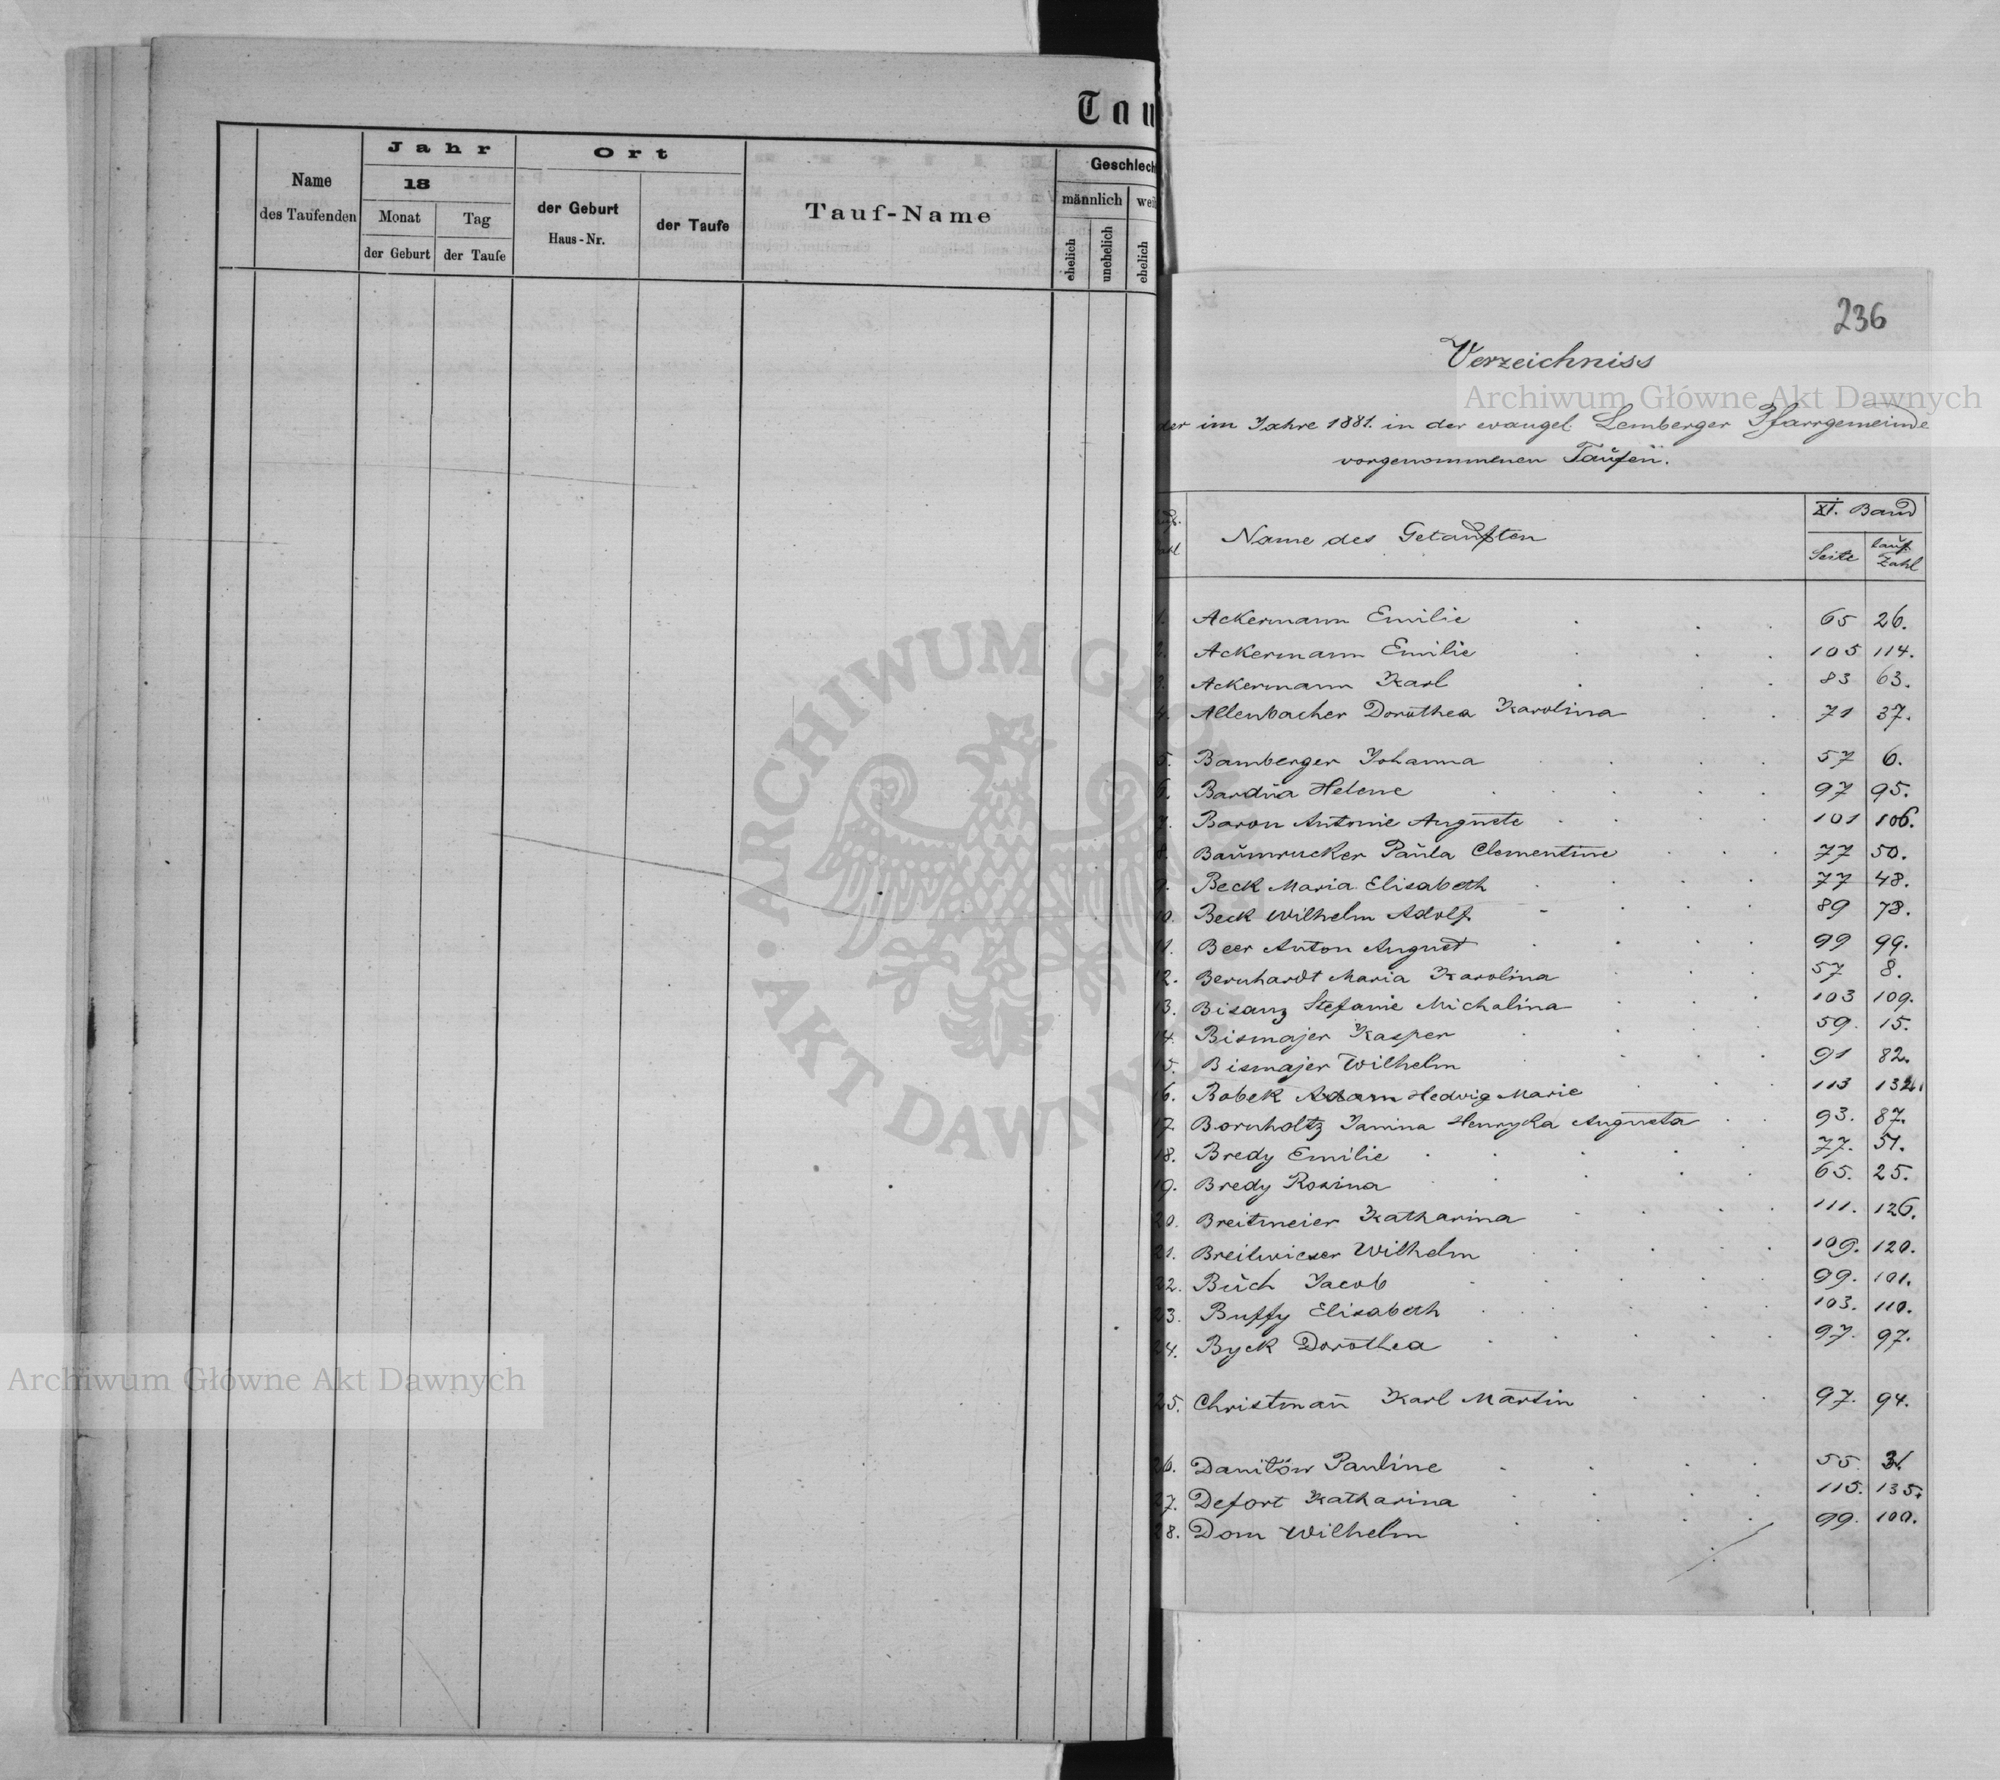 Tau
Jahr
Ort
Geschlech
Name
des Taufenden
18
Monat
Tag
der Geburt
der Taufe
der Geburt
Haus-Nr.
der Taufe
Tauf-Name
männlich
wei
ehelich
unehelich
ehelich
236
Verzeichniss
der im Jahre 1881. in der evangel. Lemberger Pfarrgemeinde
vorgenommenen Taufen.
Name des Getauften
XI. Band
Seite
lauf. Zahl
1. Ackermann Emilie 65 26.
2. Ackermann Emilie 105 114.
3. Ackermann Karl 83 63.
4. Allenbacher Dorothea Karolina 71 37.
5. Bamberger Johanna 57 6.
6. Bardŭa Helene 97 95.
7. Baron Antonie Auguste 101 106.
8. Baŭmrucker Paŭla Clementine 77 50.
9. Beck Maria Elisabeth 77 48.
10. Beck Wilhelm Adolf 89 78.
11. Beer Anton August 99 99.
12. Bernhardt Maria Karolina 57 8.
13. Bisanz Stefanie Michalina 103 109.
14. Bismajer Kasper 59. 15.
15. Bismajer Wilhelm 91 82.
16. Bobek Adam Hedvig Marie 113 132.
17. Bornholtz Janina Henryka Augusta 93. 87.
18. Bredy Emilie 77. 51.
19. Bredy Rosina 65. 25.
20. Breitmeier Katharina 111. 126.
21. Breitwieser Wilhelm 109. 120.
22. Bŭch Jacob 99. 101.
23. Buffy Elisabeth 103. 110.
24. Byck Dorothea 97. 97.
25. Christmañ Karl Martin 97. 94.
26. Danilów Pauline 55
27. Defort Katharina 115. 135.
28. Dom Wilhelm 99. 100.
ARCHIWUM GŁÓWNE
AKT DAWNYCH
Archiwum Główne Akt Dawnych
Archiwum Główne Akt Dawnych